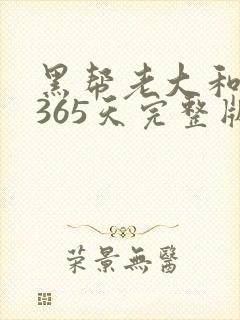 黑帮老大和
365天完整版
荣景無醫